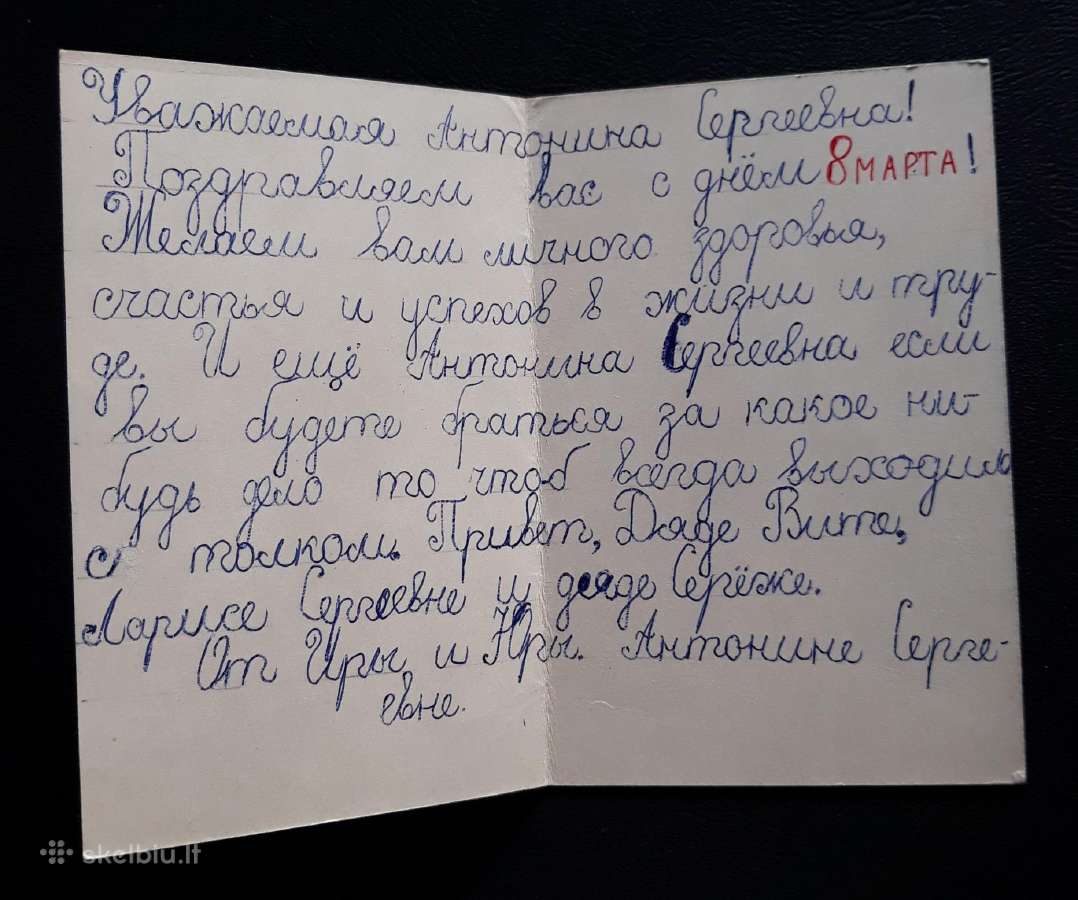 Уважаемая Антонина Сергеевна!
Поздравляем вас с днём 8 МАРТА!
Желаем вам личного здоровья,
счастья и успехов в жизни и тру-
де. И ещё Антонина Сергеевна если
вы будете браться за какое ни-
будь дело то чтоб всегда выходило
с толком. Привет, Дяде Вите,
Ларисе Сергеевне и дяде Серёже.
От Иры и Юры. Антонине Серге-
евне.
skelbiu.lt